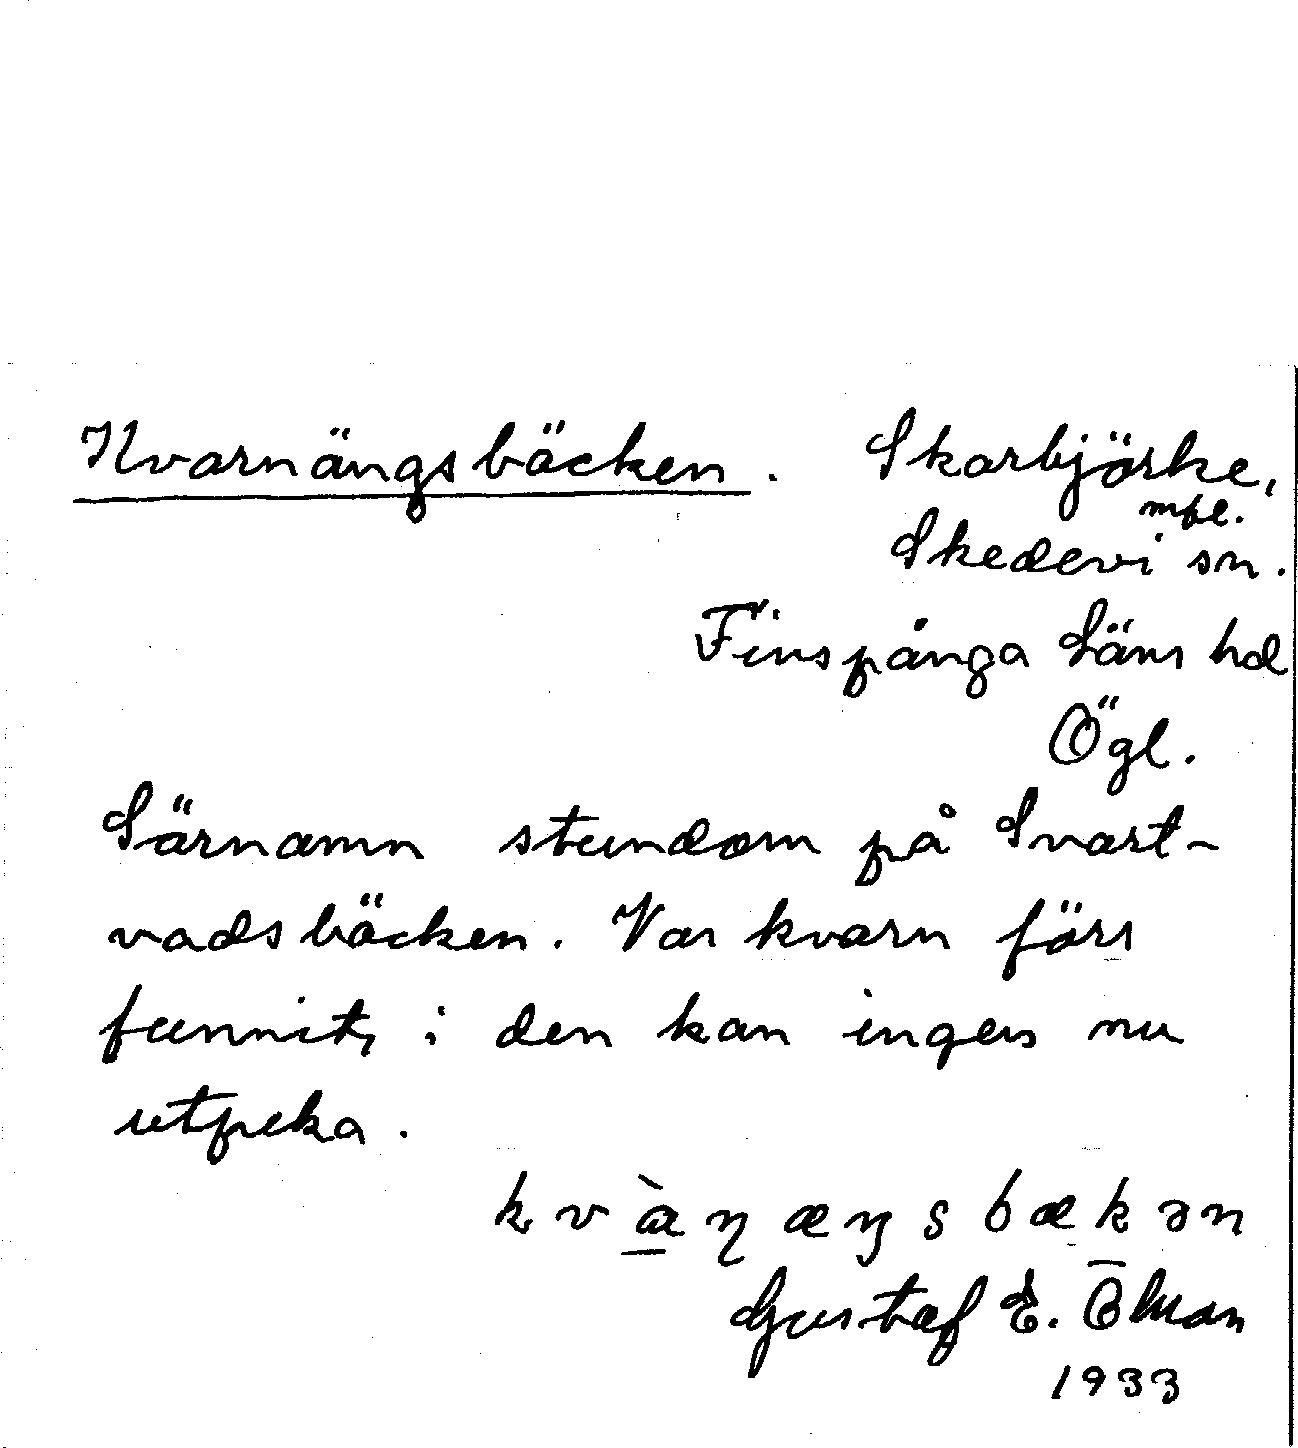 Kvarnängsbäcken. Skarbjörke,
mfl.
Skedevi sn.
Finspånga Läns hd
Ögl.
Särnamn stundom på Svart-
vadsbäcken. Var kvarn förs
funnits i den kan ingen nu
utpeka.
kvàɳæŋsbækən
Gustaf E.
1933